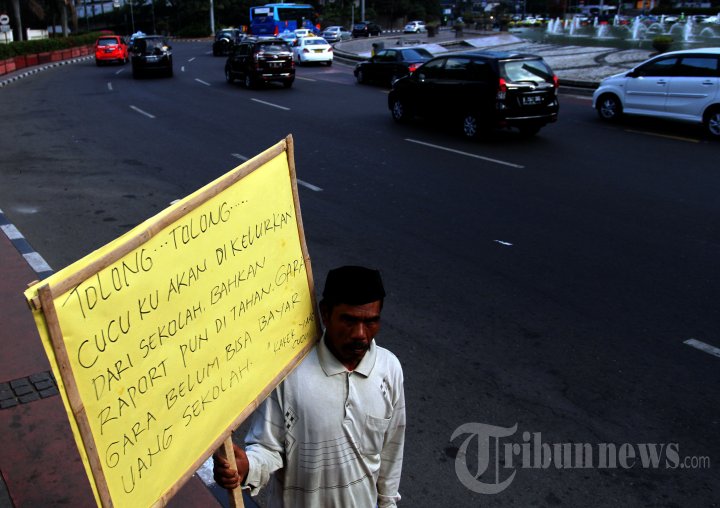 TOLONG...TOLONG....
CUCU KU AKAN DI KELURKAN
DARI SEKOLAH. BAHKAN
RAPORT PUN DI TAHAN. GARA
GARA BELUM BISA BAYAR
UANG SEKOLAH.
Tribunnews.com